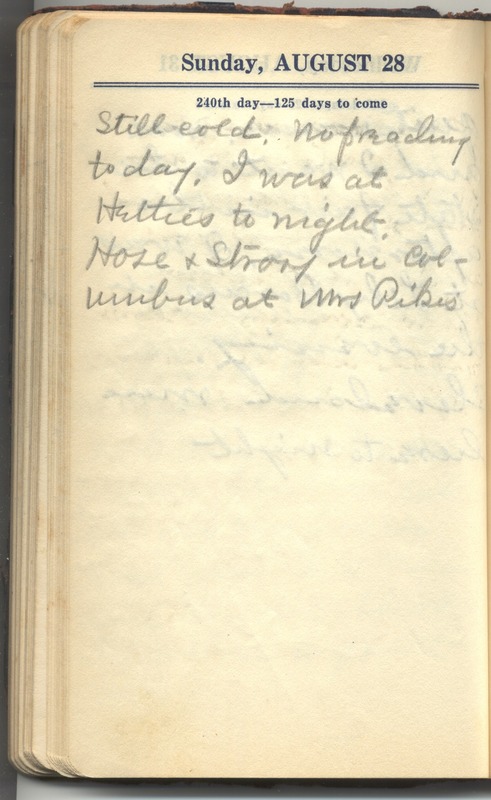 Sunday, AUGUST 28
240th day—125 days to come
Still cold. No preaching
today. I was at
Hetties to night.
Hose & Stroof in Col-
umbus at Mrs Pikes